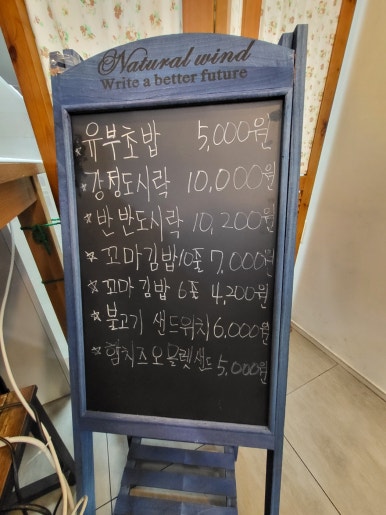 Natural wind
Write a better future
유부초밥 5,000원
강정도시락 10,000원
*반반도시락 10,200원
*꼬마김밥10줄 7,000원
*꼬마김밥 6줄 4,200원
*불고기 샌드위치 6,000원
*햄치즈오믈렛샌드 5,000원